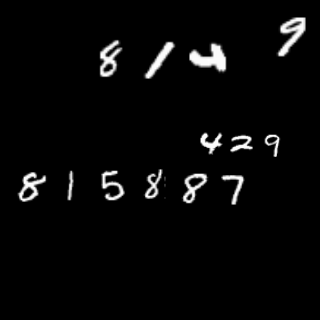 814 9
429
815887